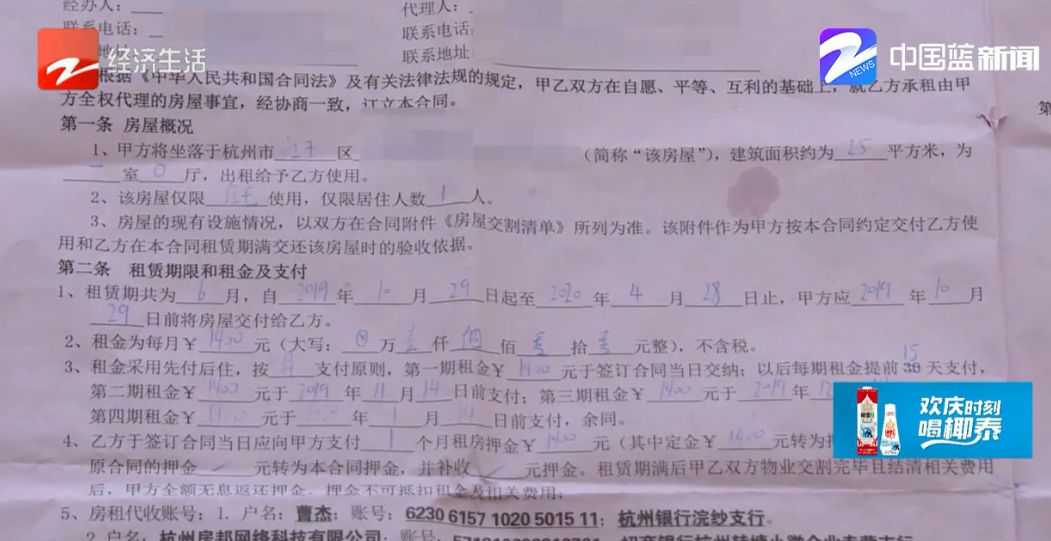 经办人：
代理人：
联系电话：
联系电话：
联系地址：
经济生活
中国蓝新闻
NEWS
根据《中华人民共和国合同法》及有关法律法规的规定，甲乙双方在自愿、平等、互利的基础上，就乙方承租由甲
方全权代理的房屋事宜，经协商一致，订立本合同。
第一条 房屋概况
1、甲方将坐落于杭州市江干区（简称“该房屋”），建筑面积约为25平方米，为
一室0厅，出租给予乙方使用。
2、该房屋仅限使用，仅限居住人数1人。
3、房屋的现有设施情况，以双方在合同附件《房屋交割清单》所列为准。该附件作为甲方按本合同约定交付乙方使
用和乙方在本合同租赁期满交还该房屋时的验收依据。
第二条 租赁期限和租金及支付
1、租赁期共为6月，自2019年10月29日起至2020年4月28日止，甲方应2019年10月
29日前将房屋交付给乙方。
2、租金为每月￥1400元（大写：万壹仟佰拾元整），不含税。
3、租金采用先付后住，按月支付原则，第一期租金￥1400元于签订合同当日交纳；以后每期租金提前30 15天支付，
第二期租金￥1400元于2019年11月14日前支付；第三期租金￥1400元于2019年12
第四期租金￥1400元于年1月14日前支付，余同。
4、乙方于签订合同当日应向甲方支付1个月租房押金￥1400元（其中定金￥1400元转为
原合同的押金元转为本合同押金，并补收元押金。租赁期满后甲乙双方物业交割完毕且结清相关费用
后，甲方全额无息返还押金。押金不可抵扣租金及相关费用；
5、房租代收账号：1. 户名：曹杰；账号：6230 6157 1020 5015 11；杭州银行浣纱支行。
2.户名：杭州房邦网络科技有限公司；账号：
欢庆时刻
喝椰泰